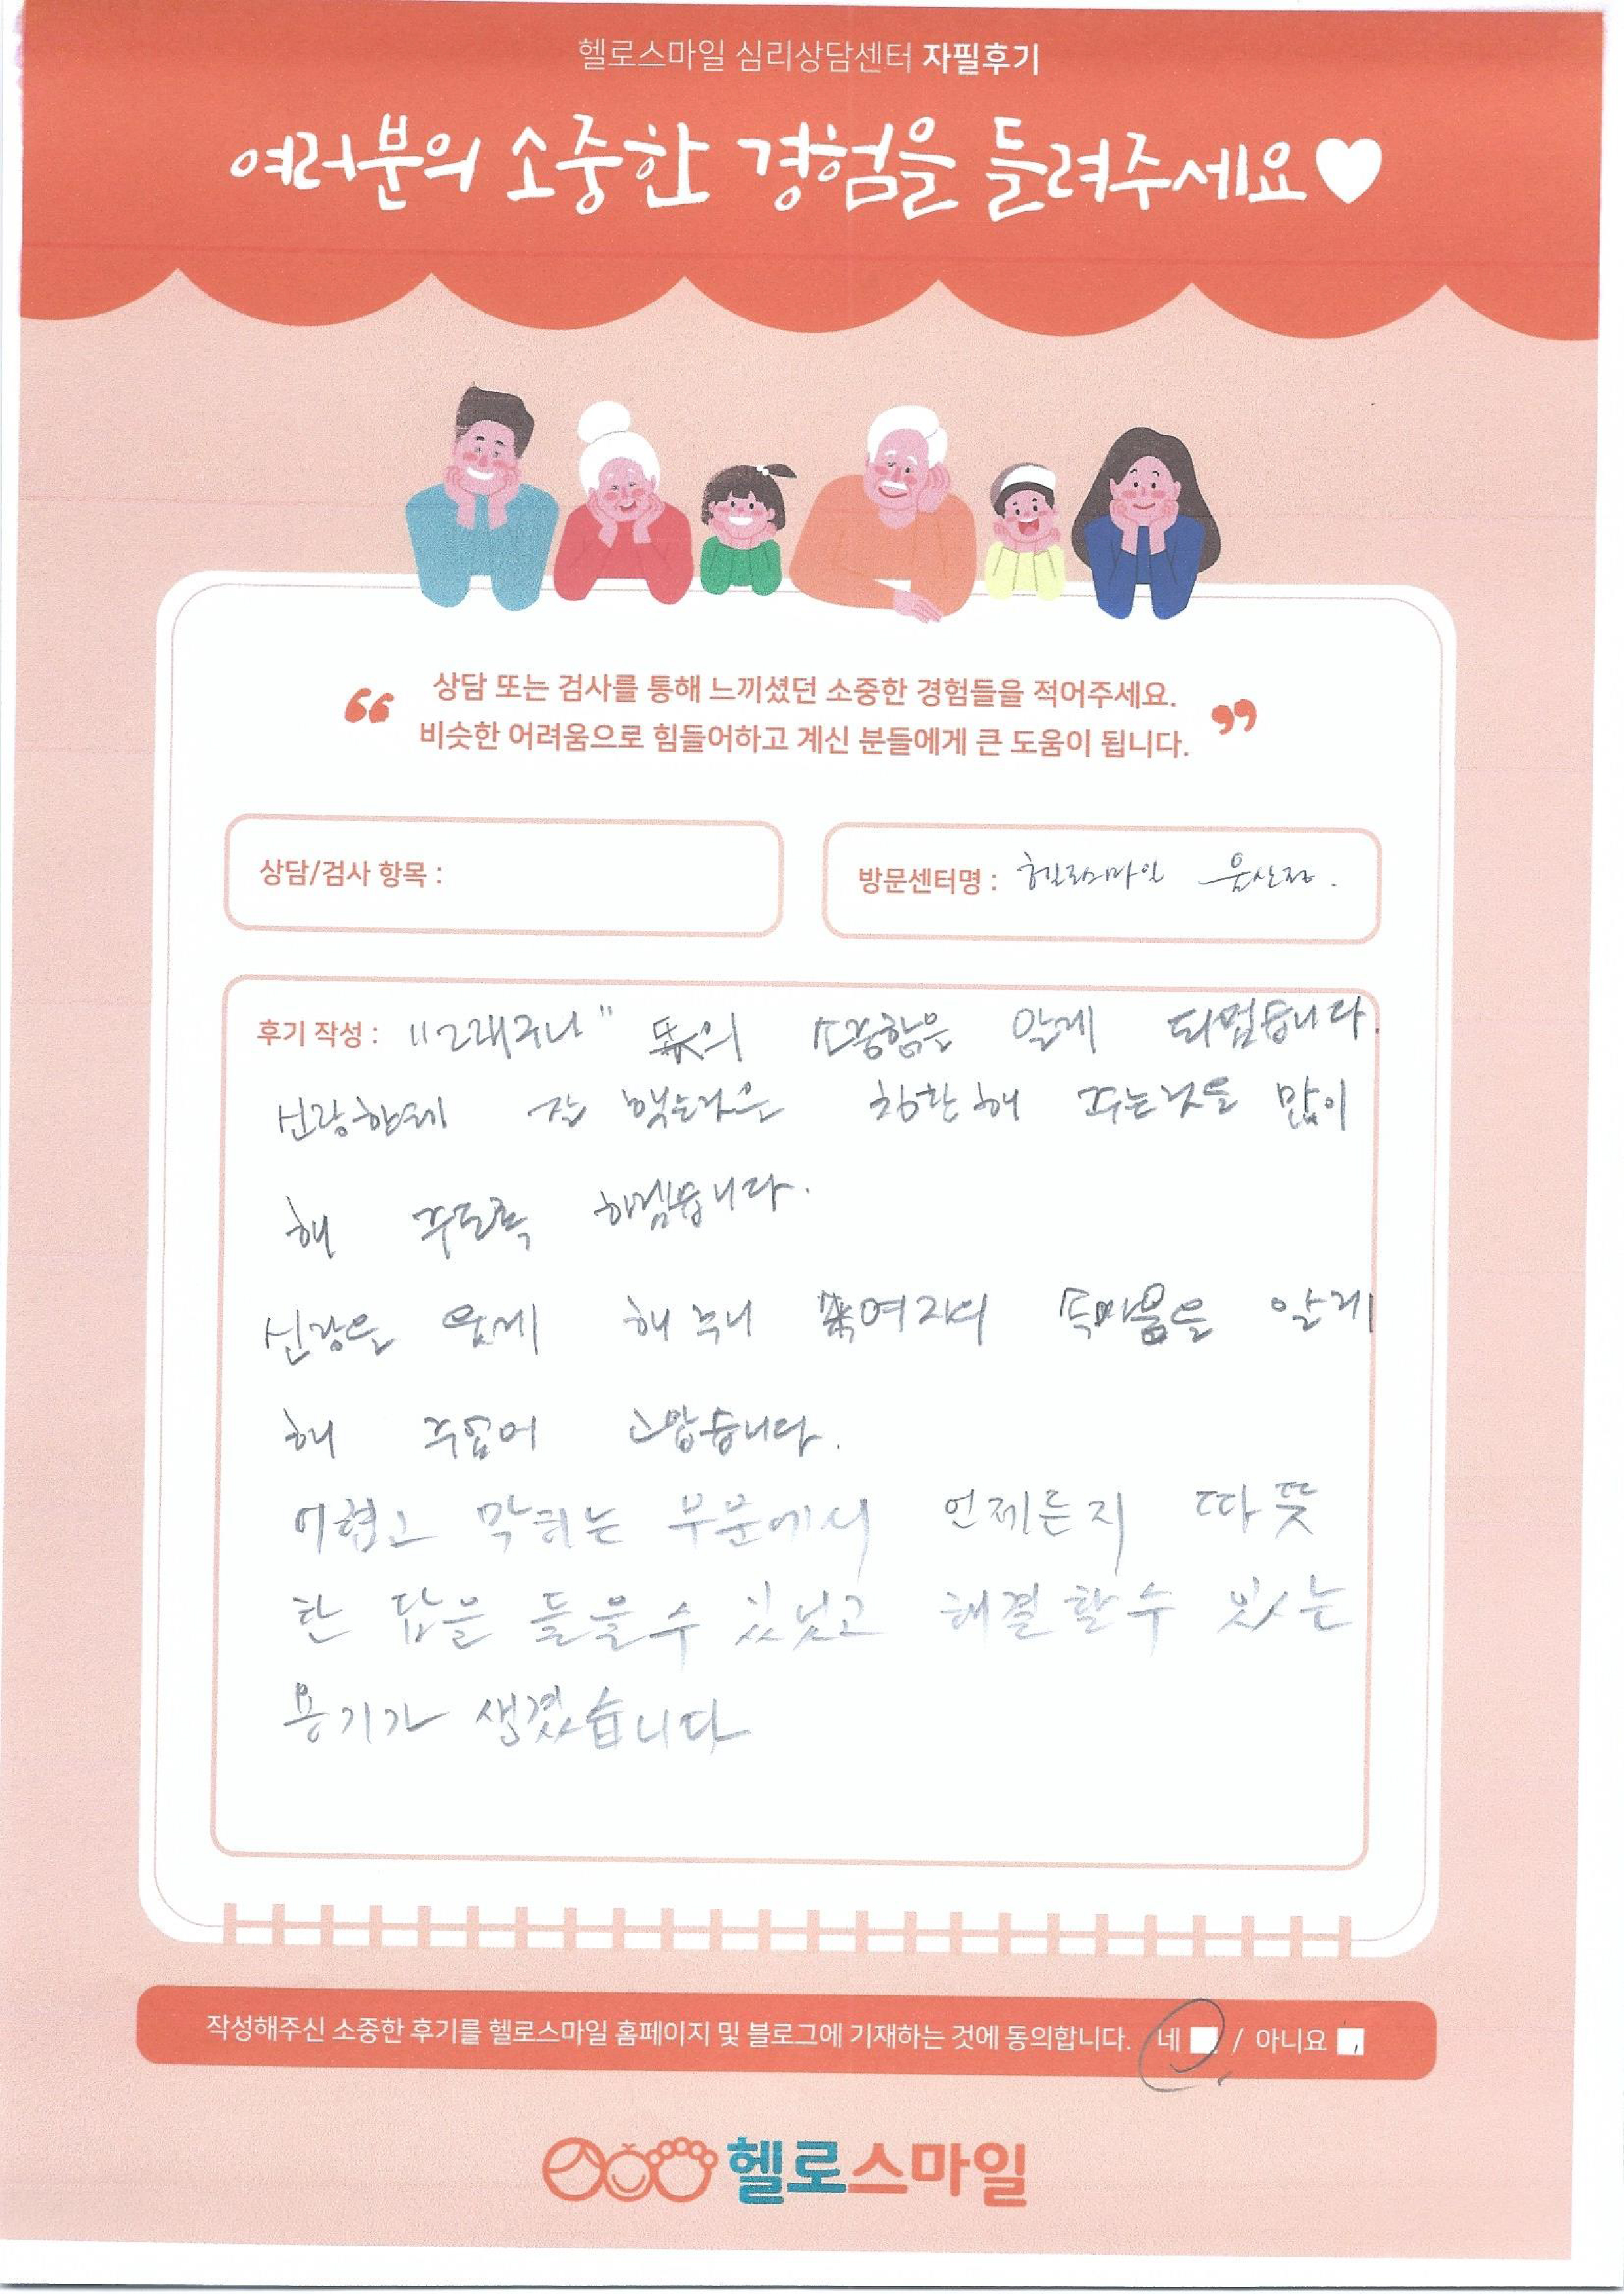 헬로스마일 심리상담센터 자필후기
여러분의 소중한 경험을 들려주세요♥
“ 상담 또는 검사를 통해 느끼셨던 소중한 경험들을 적어주세요.
비슷한 어려움으로 힘들어하고 계신 분들에게 큰 도움이 됩니다. ”
상담/검사 항목 :
방문센터명 : 헬로스마일
후기 작성 : "그래구나" 의 소중함을 알게 되업습니다.
신랑한테 잘 칭찬해 주는것을 많이
해 주도록 하겠습니다.
신랑을 해주니 여자의 속마음을 알게
해 주었어 고맙습니다.
어렵고 막히는 부분에서 언제든지 따뜻
한 답을 들을수 있었고 해결할수 있는
용기가 생겼습니다
작성해주신 소중한 후기를 헬로스마일 홈페이지 및 블로그에 기재하는 것에 동의합니다. 네 / 아니요
헬로스마일